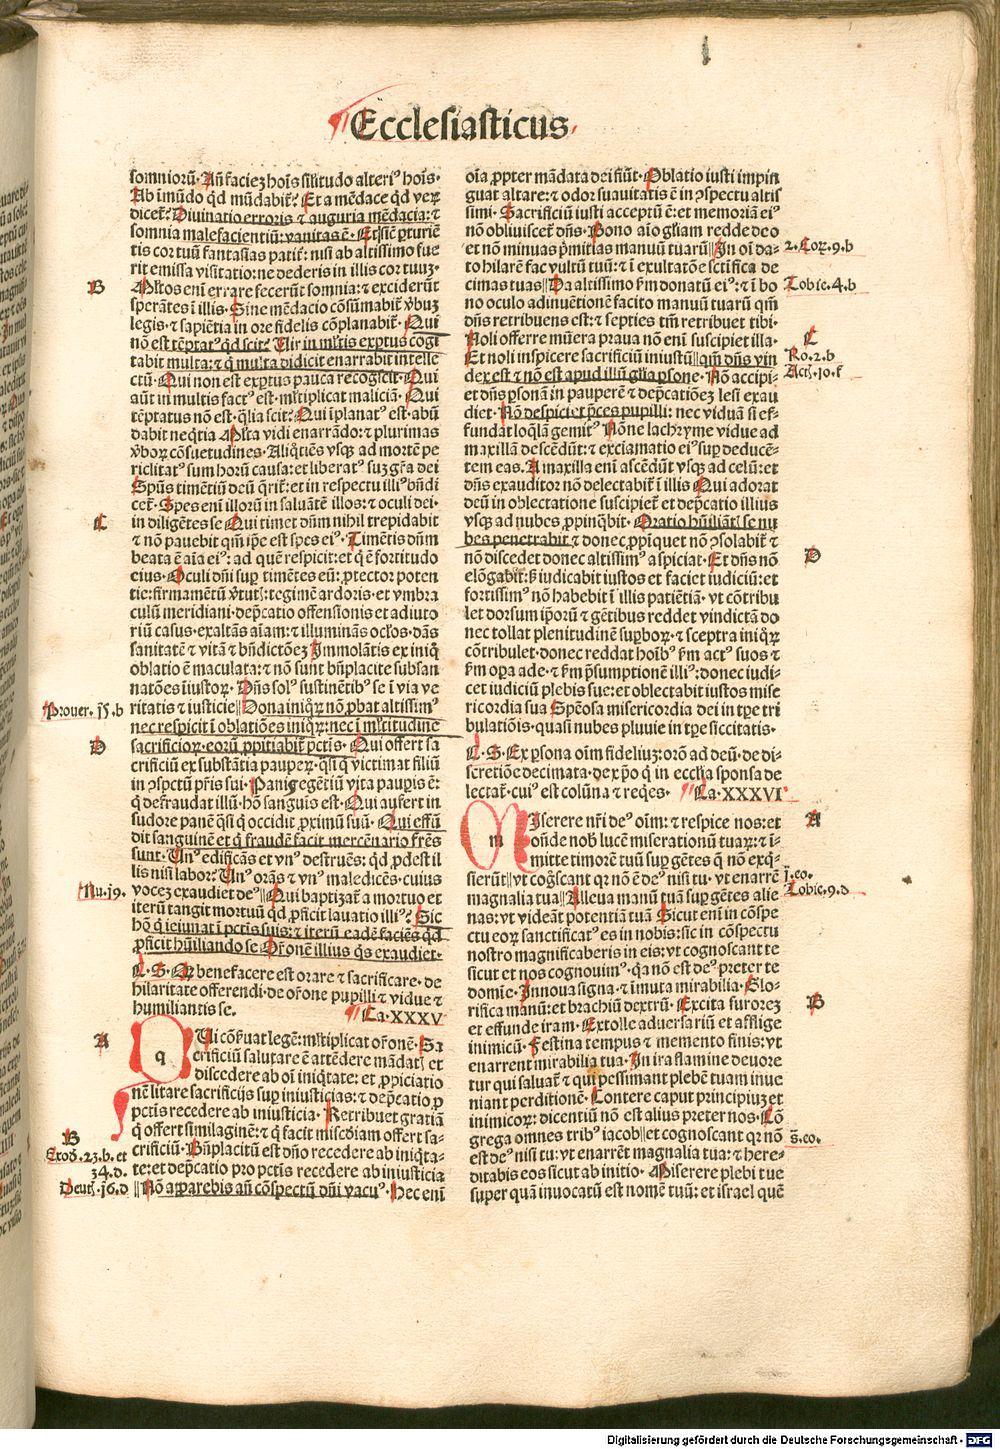 Ecclesiasticus
somniorū. Añ faciez hoīs sīlitudo alteri⁹ hoīs.
Ab īmūdo qd mūdabit᷑? Et a mēdace qd veꝝ
dicet᷑? Diuinatio erroris ⁊ auguria mēdacia: ⁊
somnia malefacientiū: vanitas ē. Et sic̄ ꝑturiē
tis cor tuū fantasias patit᷑: nisi ab altissimo fue
rit emissa visitatio: ne dederis in illis cor tuuz.
B
Mltos enī errare fecerūt somnia: ⁊ exciderūt
sperātes ī illis. Sine mendacio cōsūmabit᷑ v̓buz
legis. ⁊ sapiētia in ore fidelis cōplanabit᷑. Qui
nō est tēptat⁹ qd scit? Uir in ml̓tis exptus cogi
tabit multa: ⁊ q̇ multa didicit enarrabit intelle
ctū. Qui non est exptus pauca recogscit. Qui
aūt in multis fact⁹ est. ml̓tiplicat maliciā. Qui
tēptatus nō est. q̄lia scit? Qui īplanat⁹ est. abū
dabit neq̇tia Ml̓ta vidi enarrādo: ⁊ plurimas
v̓boꝝ cōsuetudines. Aliq̇tiēs vsqꝫ ad mortē pe
riclitat⁹ sum horū causa: et liberat⁹ suz gr̄a dei
Spūs timētiū deū q̄rit᷑: et in respectu illi⁹ bn̄di
cet᷑. Spes enī illorū in saluātē illos: ⁊ oculi dei.
C
in diligētes se Qui timet dn̄m nihil trepidabit
⁊ nō pauebit qm̄ ip̄e est spes ei⁹. Timētis dn̄m
beata ē aīa ei⁹: ad quē respicit: et q̇s ē fortitudo
eius. Oculi dn̄i suꝑ timētes eū: ꝓtector poten
tie: firmamētū v̓tutꝭ: tegimē ardoris. et vmbra
culū meridiani. dep̄catio offensionis et adiuto
riū casus. exaltās aīam: ⁊ illuminās ocl̓os. dās
sanitatē ⁊ vitā ⁊ bn̄dictōez Immolātis ex iniq̄
oblatio ē maculata: ⁊ nō sunt bn̄placite subsan
natōes īiustoꝝ. Dn̄s sol⁹ sustinētib⁹ se ī via ve
Prouer. 15. b
ritatis ⁊ iusticie Dona iniq̄ꝝ nō ꝓbat altissim⁹
nec respicit ī oblatiōes iniq̄ꝝ: nec ī ml̓titudine
D
sacrificioꝝ. eorū ꝓpitiabit᷑ pctīs. Qui offert sa
crificiū ex substātia pauperꝝ. q̄si q̇ victimat filiū
in ↄspctū pr̄is sui. Panis egētiū vita paupis ē:
q̇ defraudat illū. hō sanguis est. Qui aufert in
sudore panē q̄si q̇ occidit ꝓximū suū. Qui effū
dit sanguinē et q̇ fraudē facit mercēnario fr̄es
sunt. Un⁹ edificās et vn⁹ destruēs: qd ꝓdest il
lis nisi labor? Un⁹ orās ⁊ vn⁹ maledicēs. cuius
Nu. 19.
vocez exaudiet de⁹ Qui baptizat᷑ a mortuo et
iterū tangit mortuū qd ꝓficit lauatio illi⁹? Sic
hō q̇ ieiunat ī pctīs suis: ⁊ iterū eadē faciēs qd
ꝓficit hūiliando se Or̄onē illius q̇s exaudiet.
C. S. Qꝫ benefacere est orare ⁊ sacrificare. de
hilaritate offerendi. de or̄one pupilli ⁊ vidue ⁊
humiliantis se. Ca. XXXV
A
q Ui cōseruat legē: ml̓tiplicat or̄onē. Sa
crificiū salutare ē attēdere mādatꝭ et
discedere ab oī iniq̇tate: et ꝓpiciatio
nē litare sacrificijs suꝑ iniusticias: ⁊ dep̄catio ꝓ
pctīs recedere ab iniusticia. Retribuet gratiā
q̇ offert similaginē: ⁊ q̇ facit misc̄diam offert sa-
B
crificiū. Bn̄placitū est dn̄o recedere ab iniq̇ta-
Exod. 23. b. et
34. d.
te: et dep̄catio pro pctīs recedere ab iniusticia
Deutꝭ. 16. d
Nō apparebis an̄ cōspectū dn̄i vacu⁹. Hec enī
oīa ꝓpter mādata dei fiūt. Oblatio iusti impin
guat altare: ⁊ odor suauitatis ē in ↄspectu altis
simi. Sacrificiū iusti acceptū ē: et memoriā ei⁹
nō obliuiscet᷑ dn̄s. Bono aīo gl̓iam redde deo
et nō minuas p̄mitlas manuū tuarū In oī da-
2. Coꝝ. 9. b
to hilarē fac vultū tuū: ⁊ ī exultatōe sctīfica de
cimas tuas Da altissimo s̓m donatū ei⁹: ⁊ ī bo
Tobie. 4. b
no oculo adinuētionē facito manuū tuarū qm̄
dn̄s retribuens est: ⁊ septies tm̄ retribuet tibi.
C
Noli offerre mūera praua nō enī suscipiet illa.
Et noli inspicere sacrificiū iniustū qm̄ dn̄s vin
Ro. 2. b
dex est ⁊ nō est apud illū gl̓ia ꝑsone. Nō accipi-
Actꝭ. 10. f
et dn̄s ꝑsonā in pauperē ⁊ dep̄catiōez lesi exau
diet. Nō despiciet p̄ces pupilli: nec viduā si ef-
fundat loq̄lā gemit⁹ Nōne lachryme vidue ad
maxillā descēdūt: ⁊ exclamatio ei⁹ suꝑ deducē-
tem eas. A maxilla enī ascēdūt vsqꝫ ad celū: et
dn̄s exauditor nō delectabit᷑ ī illis Qui adorat
deū in oblectatione suscipiet᷑ et dep̄catio illius
vsqꝫ ad nubes ꝓpinq̄bit. Oratio hūiliātꝭ se nu
bes penetrabit ⁊ donec ꝓpiquet nō ↄsolabit᷑ ⁊
D
nō discedet donec altissim⁹ aspiciat. Et dn̄s nō
elōgabit: sꝫ iudicabit iustos et faciet iudiciū: et
fortissim⁹ nō habebit ī illis patiētiā. vt cōtribu
let dorsum ip̄orū ⁊ gētibus reddet vindictā do
nec tollat plenitudinē suꝑboꝝ. ⁊ sceptra iniq̄ꝝ
cōtribulet. donec reddat hoīb⁹ s̓m act⁹ suos ⁊
s̓m oꝑa ade. ⁊ s̓m p̄sumptionē illi⁹: donec iudi-
cet iudiciū plebis sue: et oblectabit iustos mise
ricordia sua Spēosa misericordia dei in tꝑe tri
bulatiōis. quasi nubes pluuie in tꝑe siccitatis.
C. S. Ex ꝑsona oīm fideliuz: orō ad deū. de di-
scretiōe decimata. de xp̄o q̇ in ecclīa sponsa de
lectat᷑. cui⁹ est colūna ⁊ req̇es. Ca. XXXVI
A
m Iserere nr̄i de⁹ oīm: ⁊ respice nos: et
oñde nob̓ lucē miserationū tuaꝝ: ⁊ ī-
mitte timorē tuū suꝑ gētes q̄ nō exq̇-
sierūt vt cog̓scant qꝛ nō ē de⁹ nisi tu. vt enarrē
j̄. eo.
magnalia tua Alleua manū tuā suꝑ gētes alie
Tobie. 9. d
nas: vt videāt potentiā tuā Sicut enī in cōspe
ctu eoꝝ sanctificat⁹ es in nobis: sic in cōspectu
nostro magnificaberis in eis: vt cognoscant te
sicut et nos cognouim⁹. qꝛ nō est de⁹ preter te
domīe. Innoua signa. ⁊ īmuta mirabilia. Glo-
B
rifica manū: et brachiū dextrū. Excita furorez
et effunde iram. Extolle aduersariū et afflige
inimicū. Festina tempus ⁊ memento finis: vt
enarrent mirabilia tua. In ira flamine deuore
tur qui saluat᷑ ⁊ qui pessimant plebē tuam inue
niant perditionē. Contere caput principiuz et
inimicoꝝ: dicentiū nō est alius preter nos. Cō
grega omnes trib⁹ iacob et cognoscant qꝛ nō
s̄. eo.
est de⁹ nisi tu: vt enarrēt magnalia tua: ⁊ here-
ditabis eos sicut ab initio. Miserere plebi tue
super quā inuocatū est nomē tuū: et israel quē
Digitalisierung gefördert durch die Deutsche Forschungsgemeinschaft - DFG